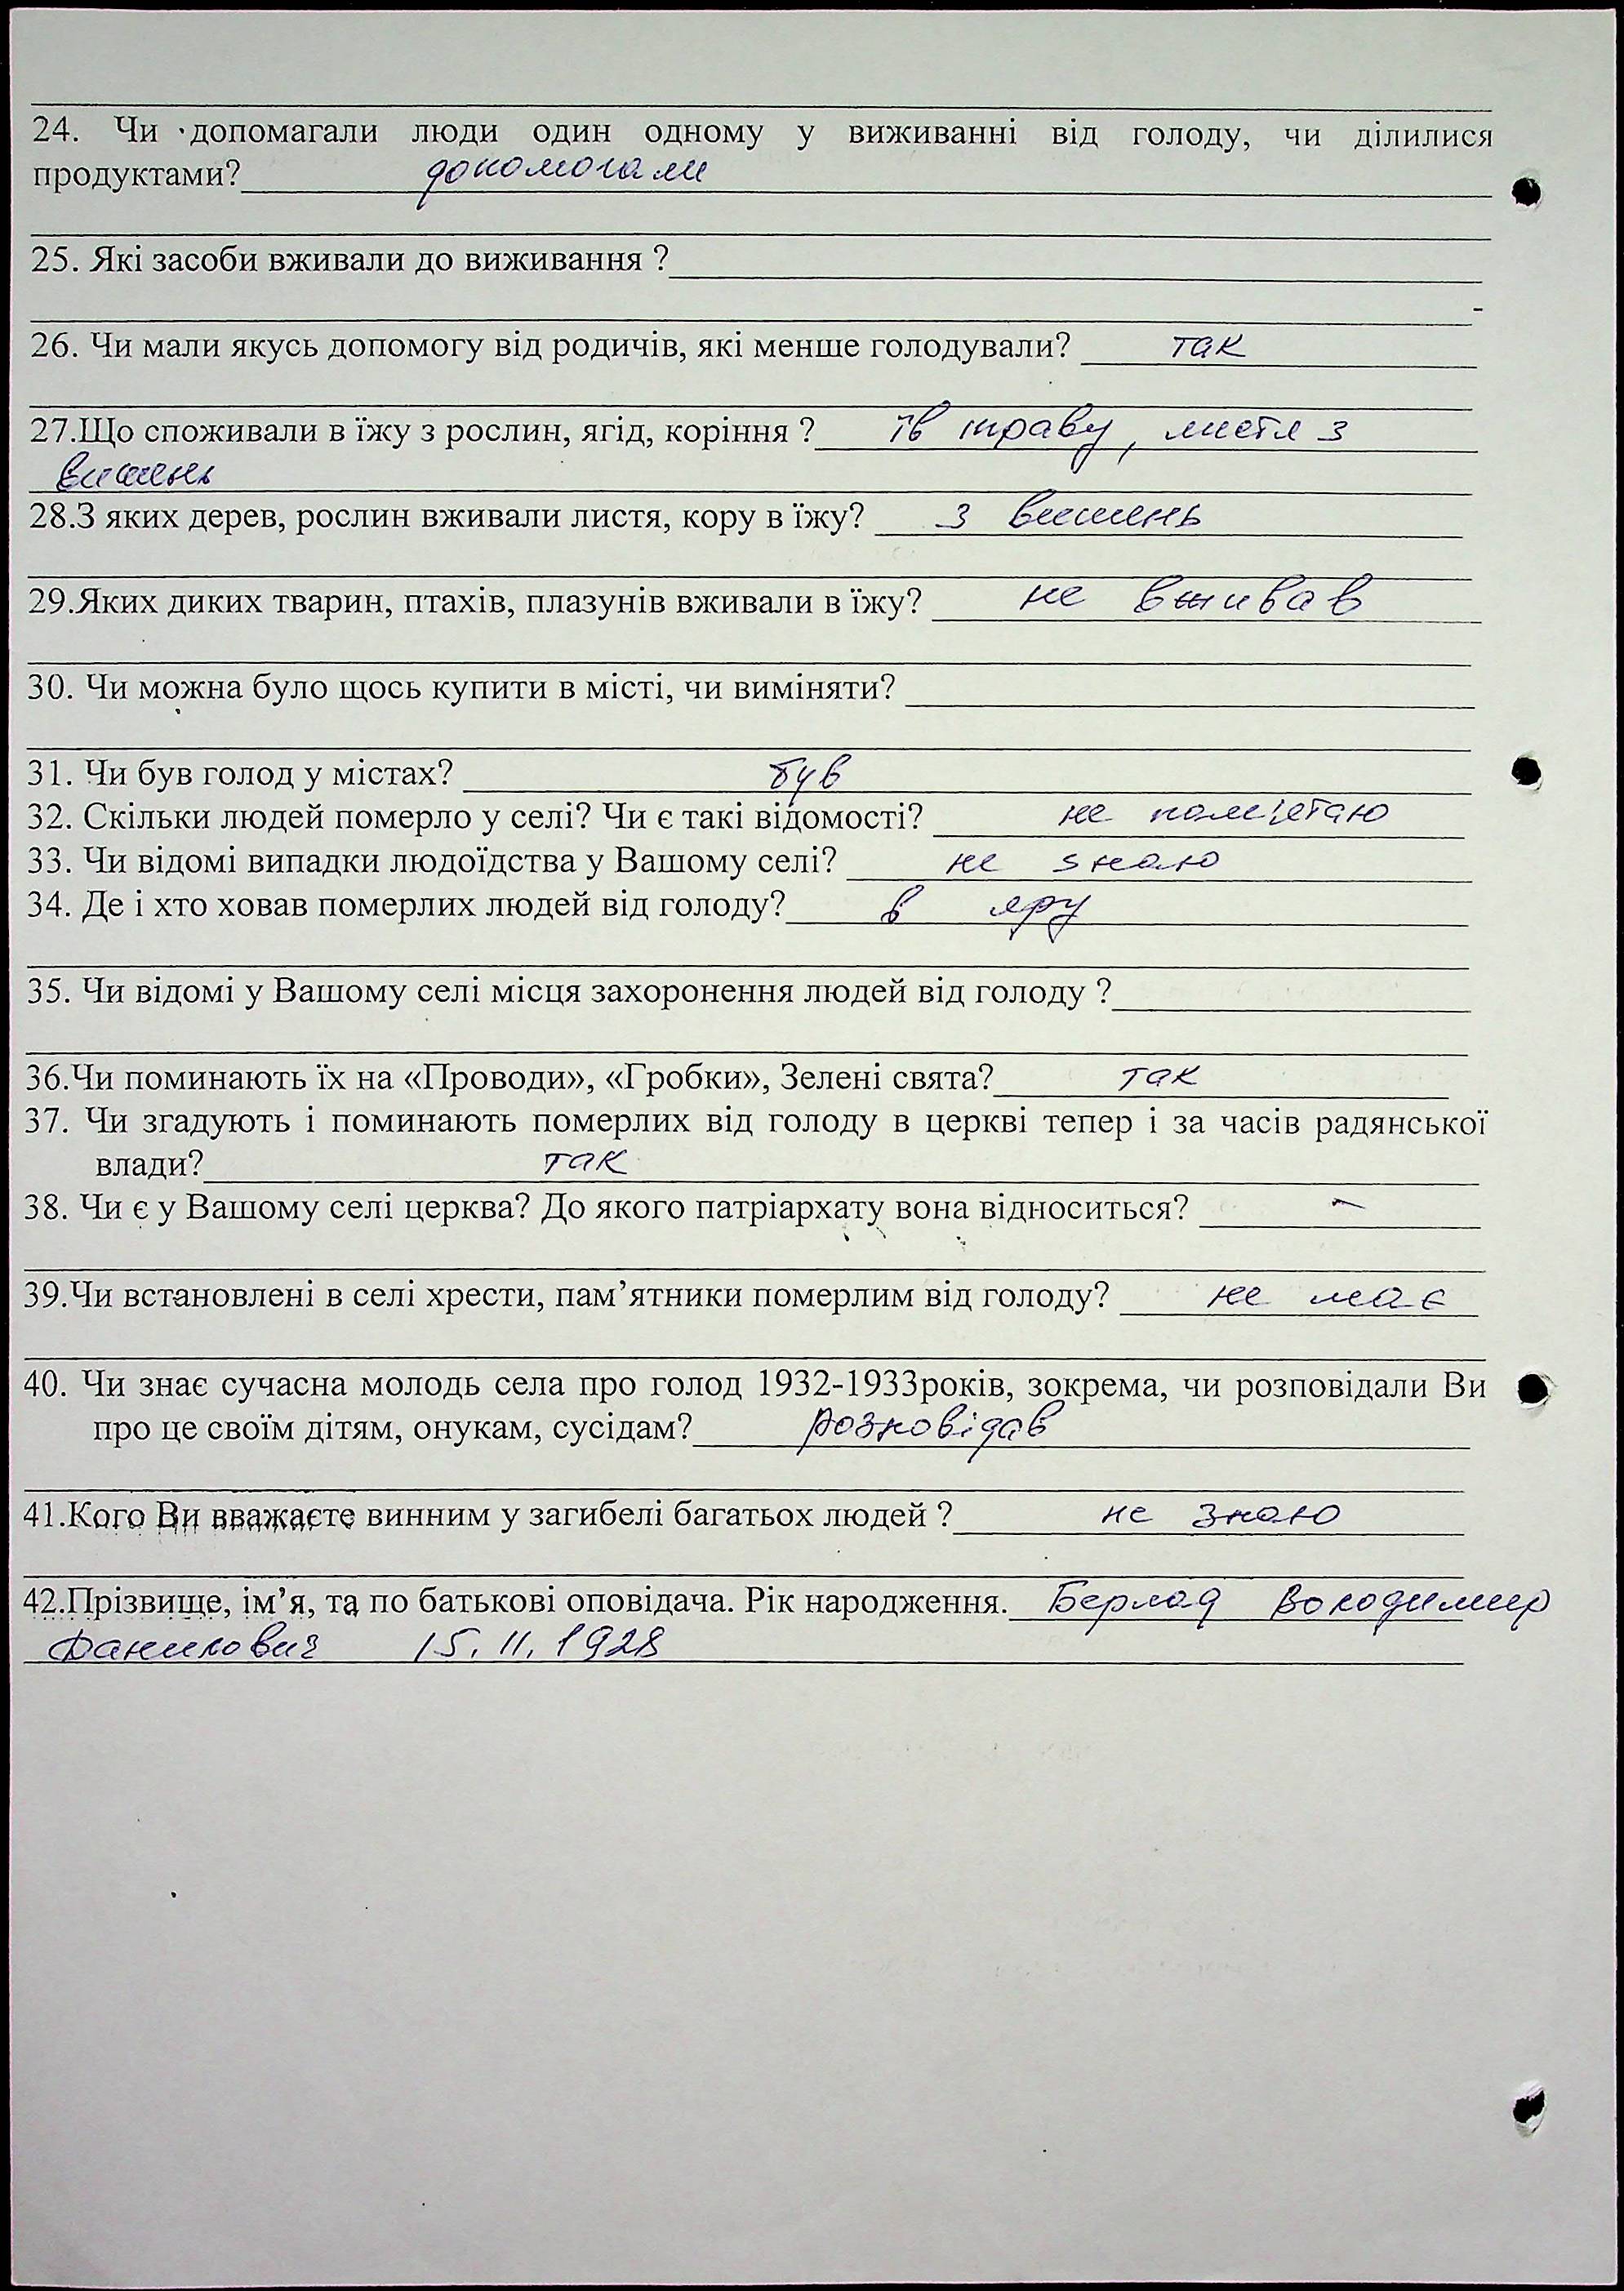 24. Чи допомагали люди один одному у виживанні від голоду, чи ділилися
продуктами? допомогали
25. Які засоби вживали до виживання ?
26. Чи мали якусь допомогу від родичів, які менше голодували? так
27.Що споживали в їжу з рослин, ягід, коріння ? їв траву, листя з
вишень
28.З яких дерев, рослин вживали листя, кору в їжу? з вишень
29.Яких диких тварин, птахів, плазунів вживали в їжу? не вживав
30. Чи можна було щось купити в місті, чи виміняти?
31. Чи був голод у містах? був
32. Скільки людей померло у селі? Чи є такі відомості? не памʼятаю
33. Чи відомі випадки людоїдства у Вашому селі? не знаю
34. Де і хто ховав померлих людей від голоду? в яру
35. Чи відомі у Вашому селі місця захоронення людей від голоду ?
36.Чи поминають їх на «Проводи», «Гробки», Зелені свята? так
37. Чи згадують і поминають померлих від голоду в церкві тепер і за часів радянської
влади? так
38. Чи є у Вашому селі церква? До якого патріархату вона відноситься? –
39.Чи встановлені в селі хрести, пам’ятники померлим від голоду? не має
40. Чи знає сучасна молодь села про голод 1932-1933років, зокрема, чи розповідали Ви
про це своїм дітям, онукам, сусідам? розповідав
41.Кого Ви вважаєте винним у загибелі багатьох людей ? не знаю
42.Прізвище, ім’я, та по батькові оповідача. Рік народження. Берлад Володимир
Данилович 15.11.1928